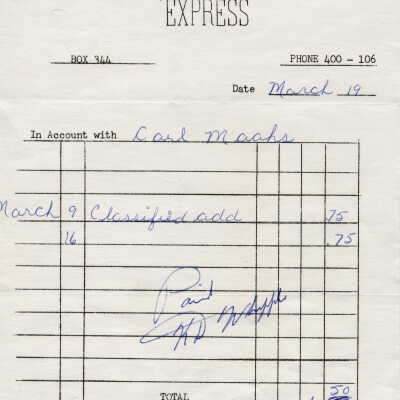 EXPRESS
BOX 344 PHONE 400 - 106
Date March 19
In Account with Carl Maahs
March 9 Classified add .75
16 .75
Paid
TOTAL 1 50